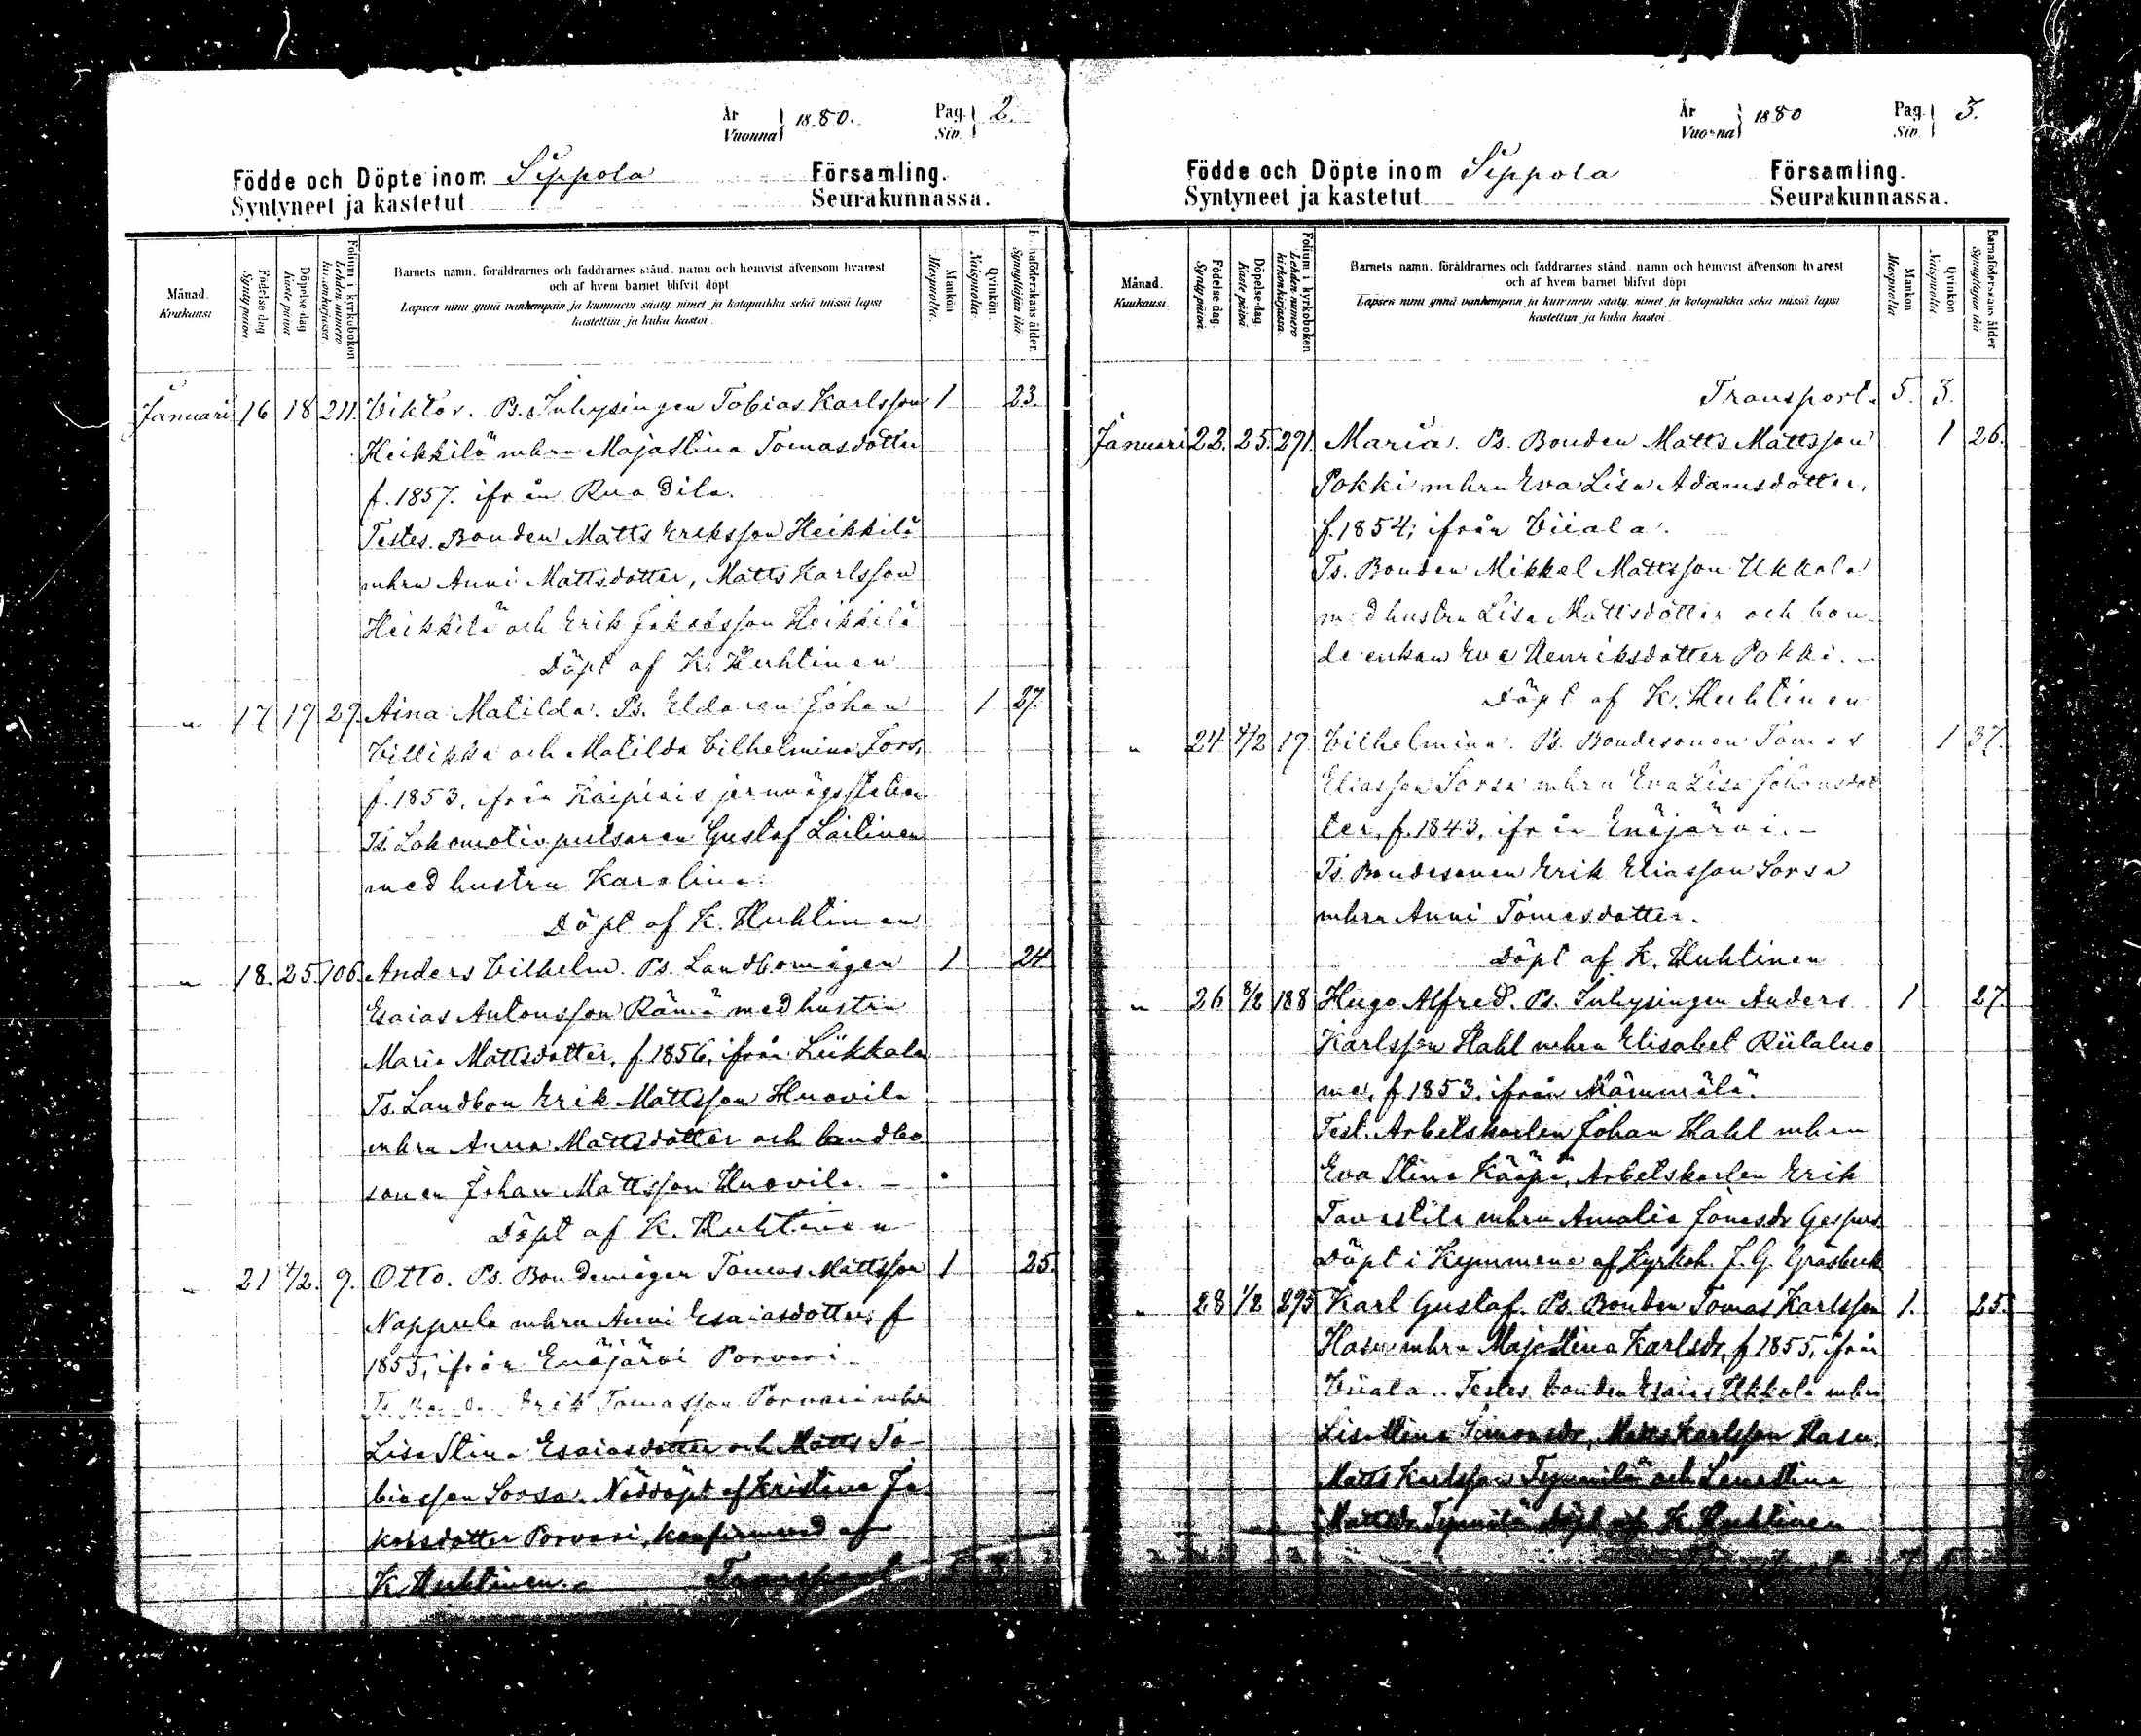 År Vuonna 1880. Pag. Siv. 2.
Födde och Döpte inom Sippola Församling.
Syntyneet ja kastetut Seurakunnassa.
Månad. Kuukausi
Födelse-dag Synty päivä
Döpelse-dag Kaste päivä
Folium i kyrkoboken Lehden numero kirkonkirjassa
Barnets namn, föräldrarnes och faddrarnes stånd, namn och hemvist äfvensom hvarest
och af hvem barnet blifvit döpt
Lapsen nimi ynnä vanhempain ja kummein sääty, nimet ja kotopaikka sekä missä lapsi
kastettiin ja kuka kastoi.
Mankön Miespuolia.
Qvinkön Naispuolia.
Barnaföderskans ålder. Synnyttäjän ikä
Januari 16 18 211. Viktor. Ps. Inhysingen Tobias Karlsson 1 23.
Heikkilä mhru Majastina Tomasdotter
f. 1857. ifrån Ruadila.
Testes. Bonden Matts Eriksson Heikkilä
mhru Anni Mattsdotter, Matts Karlsson
Heikkilä och Erik Jakobsson Heikkilä
Döpt af K. Huhtinen
" 17 17 27. Aina Matilda. Ps. Eldaren Johan 1 27.
Villikka och Matilda Vilhelmina Fors,
f. 1853, ifrån Kaipiais jernvägsstation
Ts. Lokomotivputsaren Gustaf Laitinen
med hustru Karolina.
Döpt af K. Huhtinen
" 18. 25. 106. Anders Vilhelm. Ps. Landbomågen 1 24
Esaias Antonsson Rämä med hustru
Maria Mattsdotter, f. 1856, ifrån Liikkala
Ts. Landbon Erik Mattsson Huovila
mhru Anna Mattsdotter och landbo
sonen Johan Mattsson Huovila. -
Döpt af K. Huhtinen
" 21 1/2. 9. Otto. Ps. Bondemågen Tomas Mattsson 1 25.
Nappula mhru Anni Esaiasdotter, f
1855, ifrån Enäjärvi Porvari
Ts. Erik Tomasson Porvari mhru
Lisa Stina Esaiasdotter och Matts To-
biasson Sorsa. Nöddöpt af Kristina Ja-
kobsdotter Porvari, konfirmerad af
K. Huhtinen. Transport 5 3
År Vuonna 1880 Pag. Siv. 3.
Födde och Döpte inom Sippola Församling.
Syntyneet ja kastetut Seurakunnassa.
Månad. Kuukausi.
Födelse-dag. Synty päivä
Döpelse-dag. Kaste päivä
Folium i kyrkoboken Lehden numero kirkonkirjassa.
Barnets namn, föräldrarnes och faddrarnes stånd, namn och hemvist äfvensom hvarest
och af hvem barnet blifvit döpt
Lapsen nimi ynnä vanhempain ja kummein sääty, nimet ja kotopaikka sekä missä lapsi
kastettiin ja kuka kastoi.
Mankön Miespuolia
Qvinkön Naispuolia
Barnaföderskans ålder Synnyttäjän ikä
Transport. 5. 3.
Januari 22. 25. 291. Maria. Ps. Bonden Matts Mattsson 1 26.
Pokki mhru Eva Lisa Adamsdotter,
f. 1854, ifrån Viiala.
Ts. Bonden Mikkel Mattsson Ukkola
med hustru Lisa Mattsdotter och bon-
deenkan Eva Henriksdotter Pokki. -
Döpt af K. Huhtinen
" 24 1/2 17 Vilhelmina. Ps. Bondesonen Tomas 1 37.
Eliasson Sorsa mhru Eva Lisa Johansdot
ter, f. 1843, ifrån Enäjärvi. -
Ts. Bondesonen Erik Eliasson Sorsa
mhru Anni Tomasdotter.
Döpt af K. Huhtinen
" 26 8/2 188 Hugo Alfred. Ps. Inhysingen Anders 1 27.
Karlsson Hahl mhru Elisabet Riitaluo
ma, f 1853, ifrån Mämmälä.
Test. Arbetskarlen Johan Hahl mhru
Eva Stina Kääpä, Arbetskarlen Erik
Tavastila mhru Amalia Jonasdr
Döpt i Kymmene af Kyrkoh. J. G. Gråsbeck
" 28 1/2 295 Karl Gustaf. Ps. Bonden Tomas Karlsson 1. 25.
Hasu mhru Majastina Karlsdr, f 1855, ifrån
Viiala. Testes bonden Esaias Ukkola mhru
Lisa Stina Simonsdr, Matts Karlsson Hasu,
Matts Karlsson Tynnilä och Lenastina
Mattsdr Tynnilä döpt af K. Huhtinen
Transport 7 5